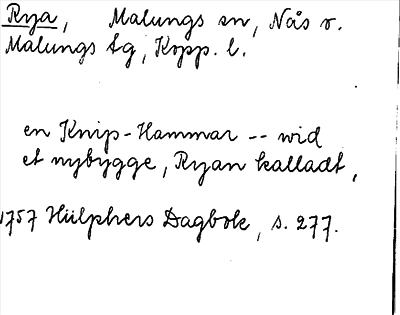 Rya, Malungs sn, Nås o.
Malungs tg, Kopp. l.
en Knip-Hammar -- wid
et nybygge, Ryan kalladt,
1757 Hülphers Dagbok, s. 277.